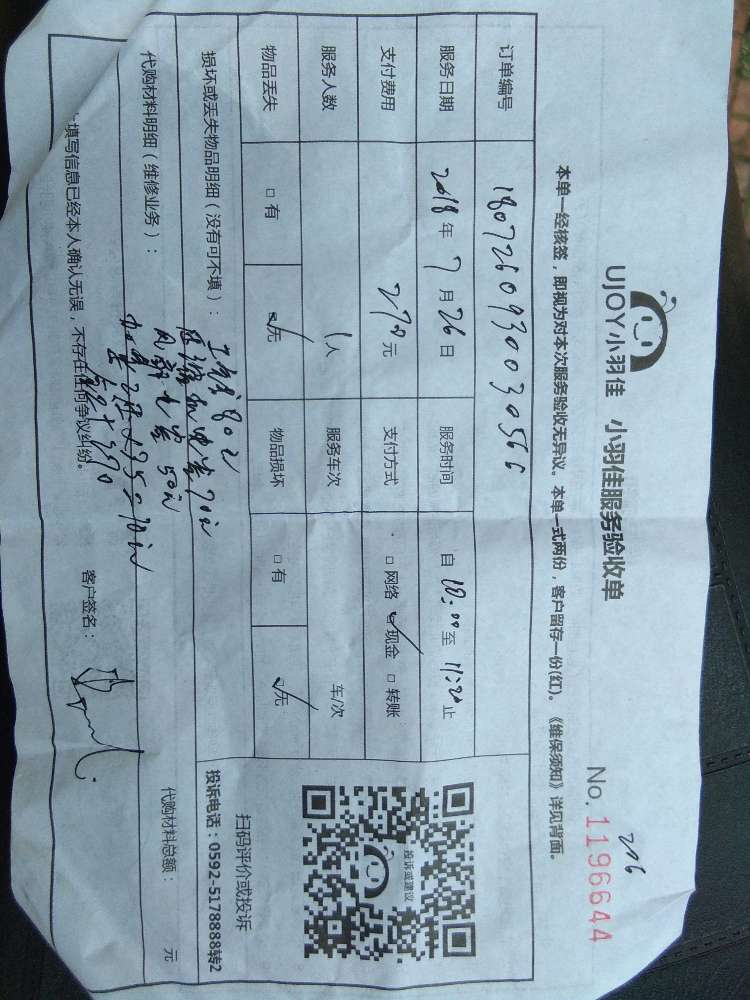 UJOY小羽佳 小羽佳服务验收单
No. 1196644
206
本单一经核签，即视为对本次服务验收无异议。本单一式两份，客户留存一份(红)。《维保须知》详见背面。
订单编号 1807260930030566
服务日期 2018 年 7 月 26 日 服务时间 自 10:00 至 11:20 止
支付费用 270 元 支付方式 □ 网络 ☑ 现金 □ 转账
服务人数 1 人 服务车次 车/次
物品丢失 □ 有 ☑ 无 物品损坏 □ 有 ☑ 无
损坏或丢失物品明细（没有可不填）：
代购材料明细（维修业务）：
代购材料总额： 元
填写信息已经本人确认无误，不存在任何争议纠纷。
客户签名：
投诉或建议
扫码评价或投诉
投诉电话：0592-5178888转2